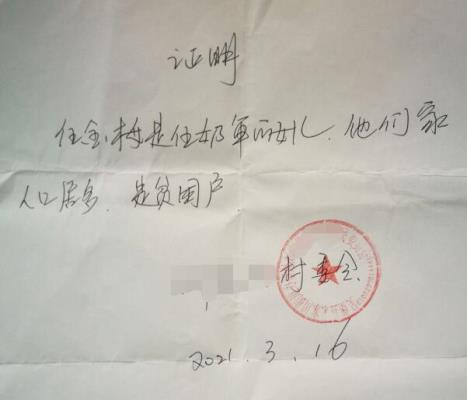 证明
任金梅是任奶军的女儿.他们家
人口居多.是贫困户
村委会
2021.3.16